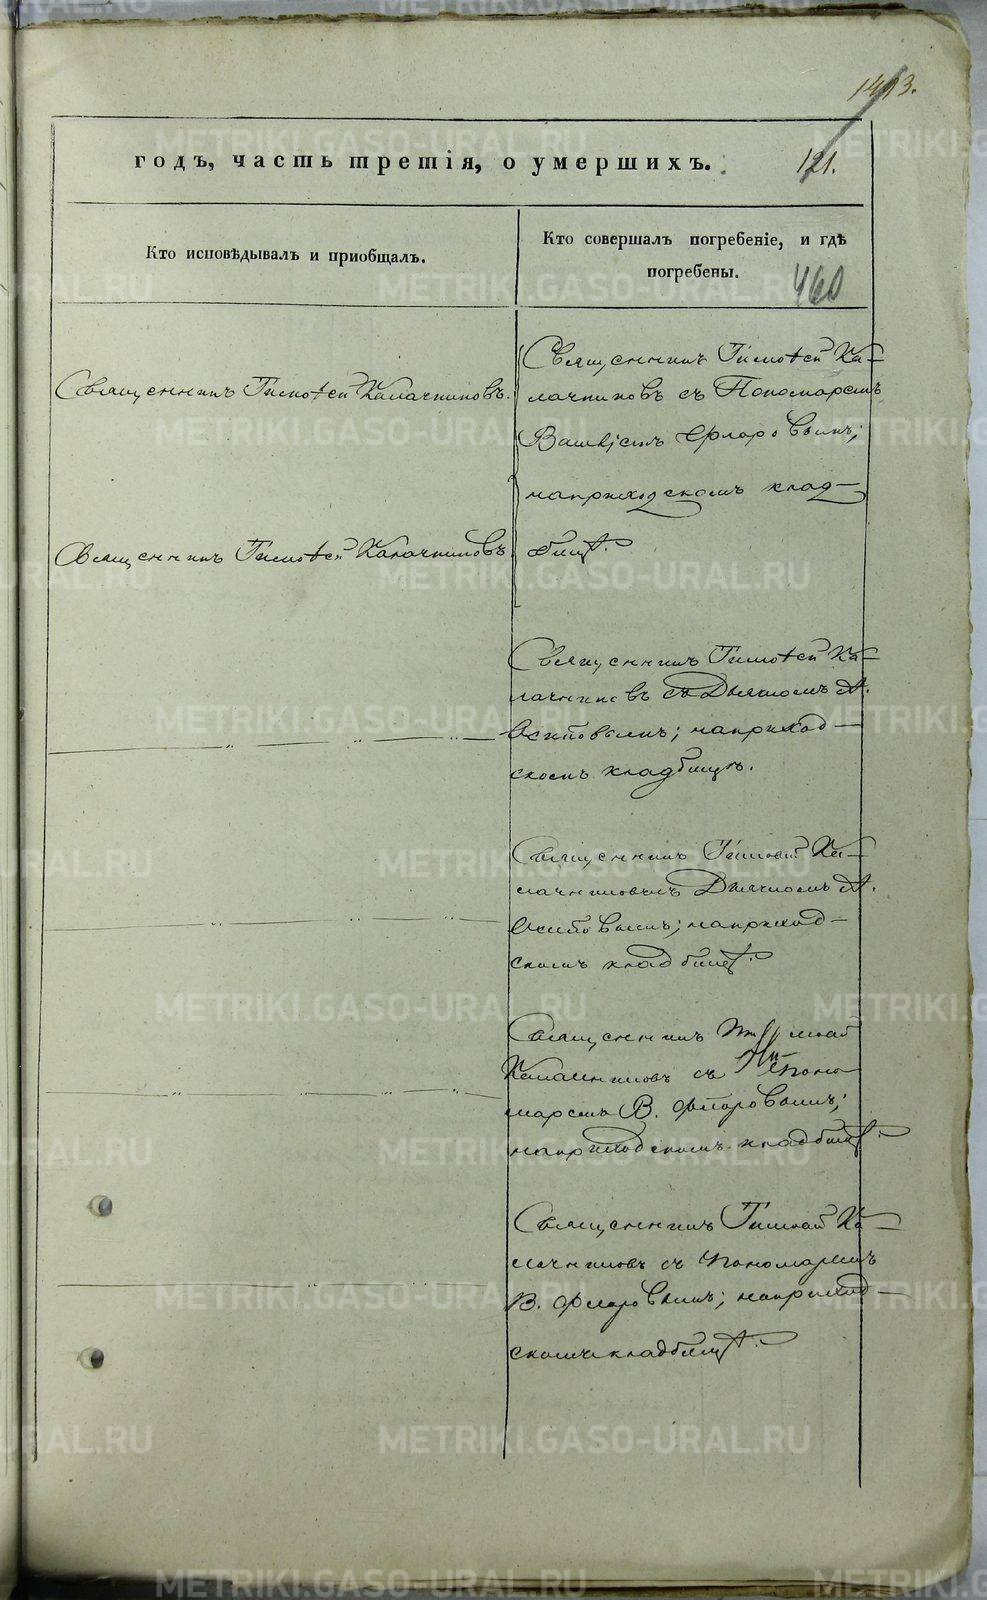 1493.
годъ, часть третія, о умершихъ.
121.
Кто исповѣдывалъ и приобщалъ.
Кто совершалъ погребеніе, и гдѣ
погребены.
460
Священникъ Тимоѳей Калачниковъ.
Священникъ Тимоѳей Ка-
лачниковъ съ Пономаремъ
Флоровымъ;
на приходскомъ клад-
бищѣ.
Священникъ Тимоѳей Калачниковъ.
Священникъ Тимоѳей Ка-
лачниковъ съ Дьячкомъ А.
Осиповымъ; на приход-
скомъ кладбищѣ.
Священникъ Тимоѳей Ка-
лачниковъ съ Дьячкомъ А.
Осиповымъ; на приход-
скомъ кладбищѣ.
Священникъ Тимоѳей
Калачниковъ съ Поно-
маремъ В. Флоровымъ;
на приходскомъ кладбищѣ.
Священникъ Тимоѳей Ка-
лачниковъ съ Пономаремъ
В. Флоровымъ; на приход-
скомъ кладбищѣ.
METRIKI.GASO-URAL.RU